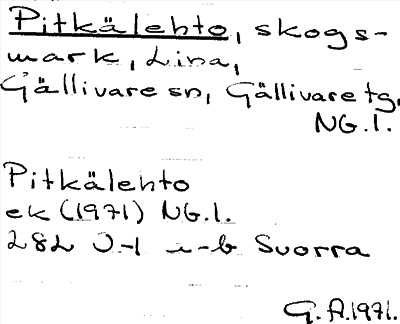 Pitkälehto, skogs-
mark, Lina,
Gällivare sn, Gällivare tg,
NG.l.
Pitkälehto
ek (1971) NG.l.
282 Suorra
G. A. 1971.